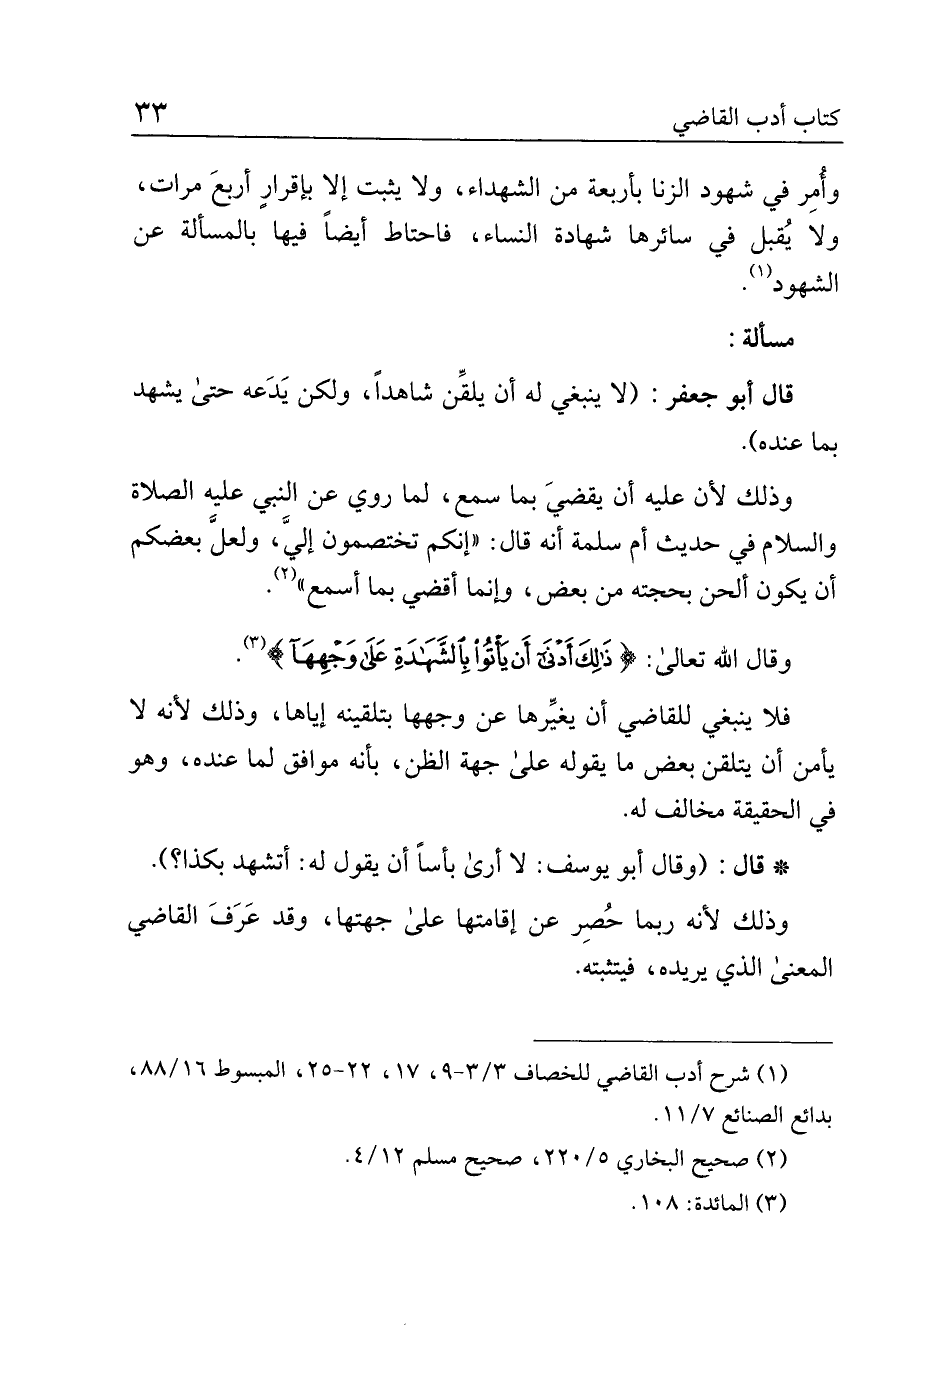 كتاب أدب القاضي ٣٣
وأُمِر في شهود الزنا بأربعة من الشهداء، ولا يثبت إلا بإقرارٍ أربعَ مرات،
ولا يُقبل في سائرها شهادة النساء، فاحتاط أيضاً فيها بالمسألة عن
الشهود(١).
مسألة :
قال أبو جعفر : (لا ينبغي له أن يلقِّن شاهداً، ولكن يَدَعه حتىٰ يشهد
بما عنده).
وذلك لأن عليه أن يقضيَ بما سمع، لما روي عن النبي عليه الصلاة
والسلام في حديث أم سلمة أنه قال: «إنكم تختصمون إليَّ، ولعلَّ بعضكم
أن يكون ألحن بحجته من بعض، وإنما أقضي بما أسمع»(٢).
وقال الله تعالىٰ: ﴿ ذَٰلِكَ أَدْنَىٰٓ أَن يَأْتُوا۟ بِٱلشَّهَٰدَةِ عَلَىٰ وَجْهِهَآ ﴾(٣).
فلا ينبغي للقاضي أن يغيِّرها عن وجهها بتلقينه إياها، وذلك لأنه لا
يأمن أن يتلقن بعض ما يقوله علىٰ جهة الظن، بأنه موافق لما عنده، وهو
في الحقيقة مخالف له.
* قال : (وقال أبو يوسف: لا أرىٰ بأساً أن يقول له: أتشهد بكذا؟).
وذلك لأنه ربما حُصِر عن إقامتها علىٰ جهتها، وقد عَرَفَ القاضي
المعنىٰ الذي يريده، فيتثبته.
(١) شرح أدب القاضي للخصاف ٣/٣-٩، ١٧، ٢٢-٢٥، المبسوط ٨٨/١٦،
بدائع الصنائع ١١/٧.
(٢) صحيح البخاري ٢٢٠/٥، صحيح مسلم ٤/١٢.
(٣) المائدة: ١٠٨.